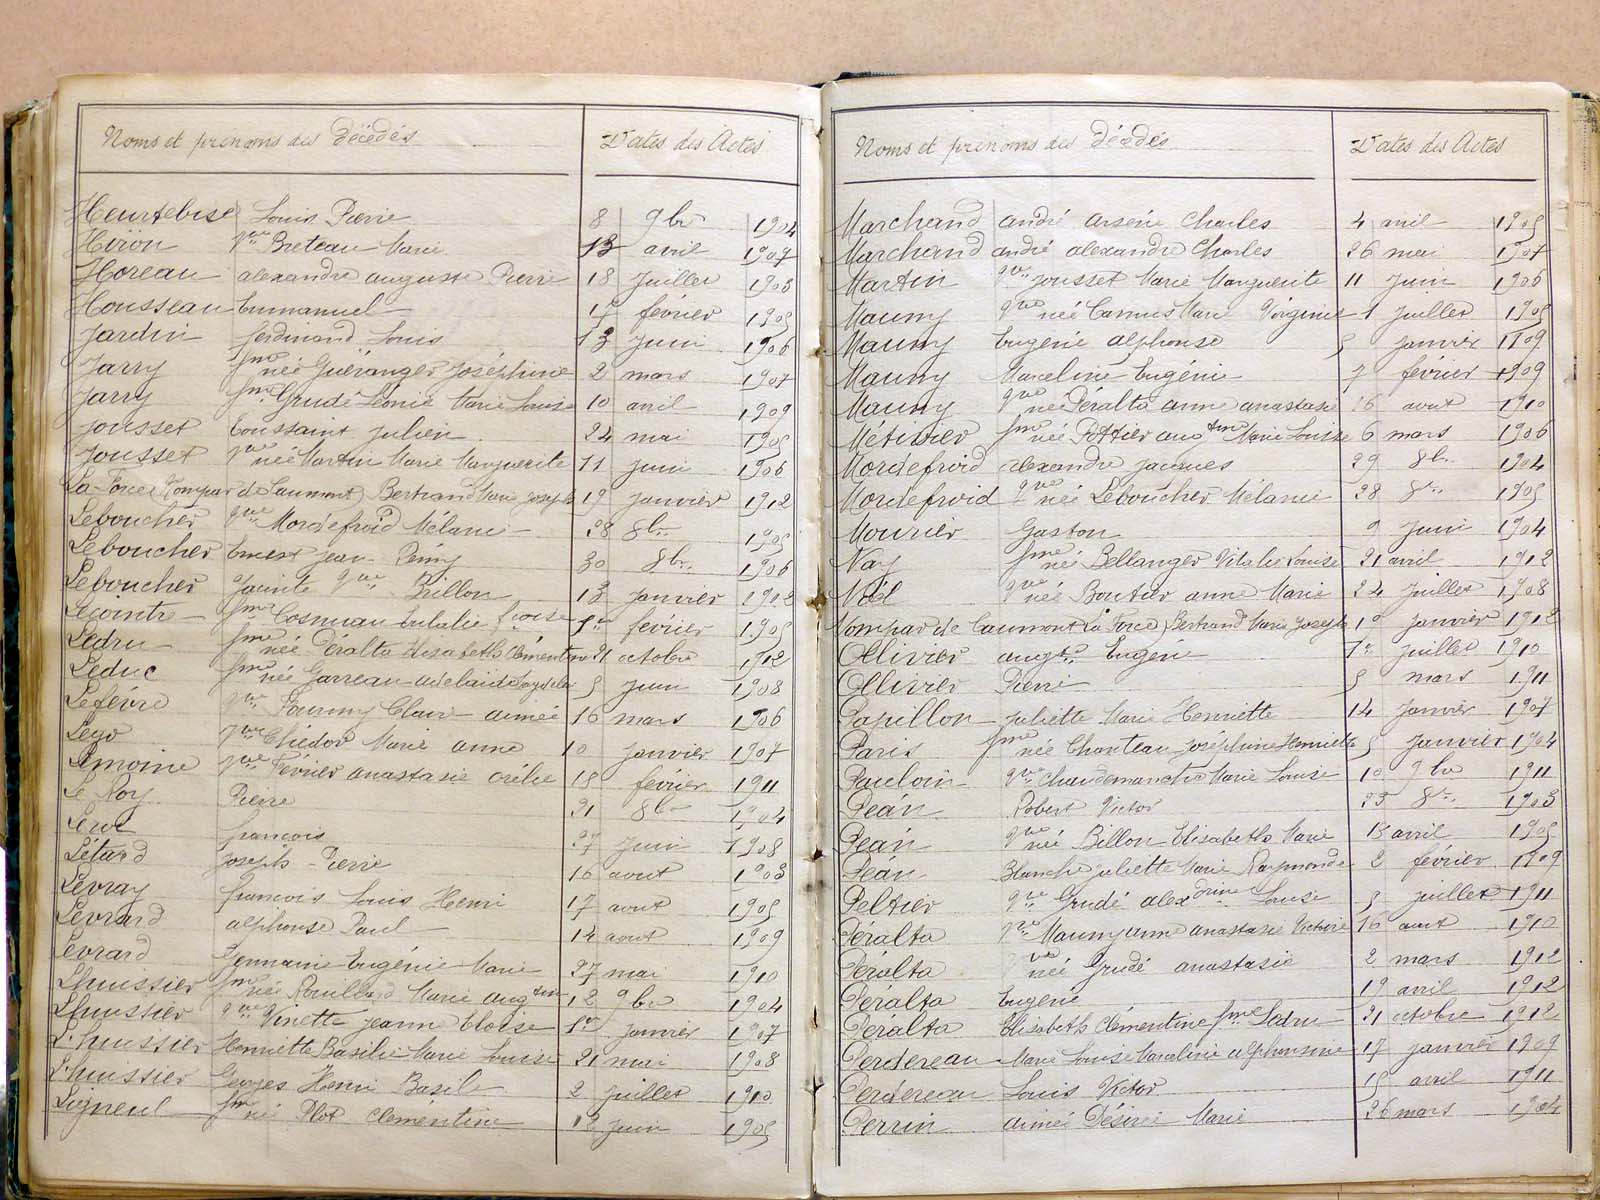 Noms et prénoms des Décédés Dates des Actes
Heurtebise Louis Pierre 8 9bre 1904
Hiron Vve Breteau Marie 13 avril 1907
Horeau alexandre auguste Pierre 18 juillet 1903
Housseau Emmanuel février 1905
Jardin ferdinand Louis 13 juin 1906
Jarry fme née Guéranger Joséphine 2 mars 1907
Jarry fme Grudé Léonie Marie Louise 10 avril 1909
Jousset Toussaint julien 24 mai 1905
Jousset Vve née Martin Marie Marguerite 11 juin 1906
La Force (Nompar de Caumont) Bertrand Marie Joseph 19 janvier 1912
Leboucher Vve Mordefroid Mélanie 28 8bre 1905
Leboucher Ernest jean Rémy 30 8bre 1906
Leboucher Jacinte Vve Brillon 13 janvier 1912
Lecointre fme Cosnuau Eulalie fçoise 1er fevrier 1905
Ledru fme née Péralta Elisabeth Clémentine 21 octobre 1912
Leduc fme née Garreau adelaide 5 juin 1908
Lefévre Vve Fourmy Clair aimée 16 mars 1906
Lego Vve Chédor Marie anne 10 janvier 1907
Lemoine Vve Février anastasie 18 fevrier 1911
Le Roy Pierre 21 8bre 1904
francois 27 juin 1908
Létard joseph Pierre 16 aout 1903
Levray francois Louis Henri 17 aout 1905
Levrard alphonse Paul 14 aout 1909
Levrard Germaine Eugénie Marie 27 mai 1910
Lhuissier fme née Rouillard Marie augtine 12 9bre 1904
Lhuissier Vve Vinette jeanne Eloise 1er janvier 1907
L'huissier Henriette Basilie Marie Louise 21 mai 1908
L'huissier Georges Henri Basile 2 juillet 1910
Ligneul fme née Plot Clementine 12 juin 1905
Noms et prénoms des Décédés Dates des Actes
Marchand andré arsène Charles 4 avril 1905
Marchand andré alexandre Charles 26 mai 1907
Martin Vve Jousset Marie Marguerite 11 juin 1906
Mauny Vve née Camus Marie Virginie 1 juillet 1905
Mauny Eugénie alphonse 5 janvier 1909
Mauny Marceline Eugénie 7 février 1909
Mauny Vve née Péralta anne anastasie 16 aout 1910
Métivier fme née Pottier augtine Marie Louise 6 mars 1906
Mordefroid alexandre jacques 29 8bre 1904
Mordefroid Vve née Leboucher Mélanie 28 8bre 1905
Mourier Gaston 9 juin 1904
Nay fme née Bellanger Vitalie Louise 21 avril 1912
Niél Vve née Boutier anne Marie 24 juillet 1908
Nompar de Caumont La Force) Bertrand Marie Joseph 19 janvier 1912
Ollivier Eugénie juillet 1910
Ollivier Pierre 5 mars 1911
Papillon juliette Marie Henriette 14 janvier 1907
Paris fme née Chanteau Joséphine Henriette 5 janvier 1904
Pauloin Vve Chaudemanche Marie Louise 10 9bre 1911
Péan Robert Victor 23 8bre 1903
Péan Vve née Billon Elisabeth Marie 13 avril 1905
Péan Blanche juliette Marie Raymonde 2 février 1909
Peltier Vve Grudé alexdrine Louise 5 juillet 1911
Péralta Vve Mauny anne anastasie Victoire 16 aout 1910
Péralta Vve née Grudé anastasie 2 mars 1912
Péralta Eugénie 19 avril 1912
Péralta Elisabeth Clémentine fme Ledru 21 octobre 1912
Perdereau Marie Louise Marceline alphonsine 17 janvier 1909
Perdereau Louis Victor 15 avril 1911
Perrin aimée Désirée Marie 26 mars 1904